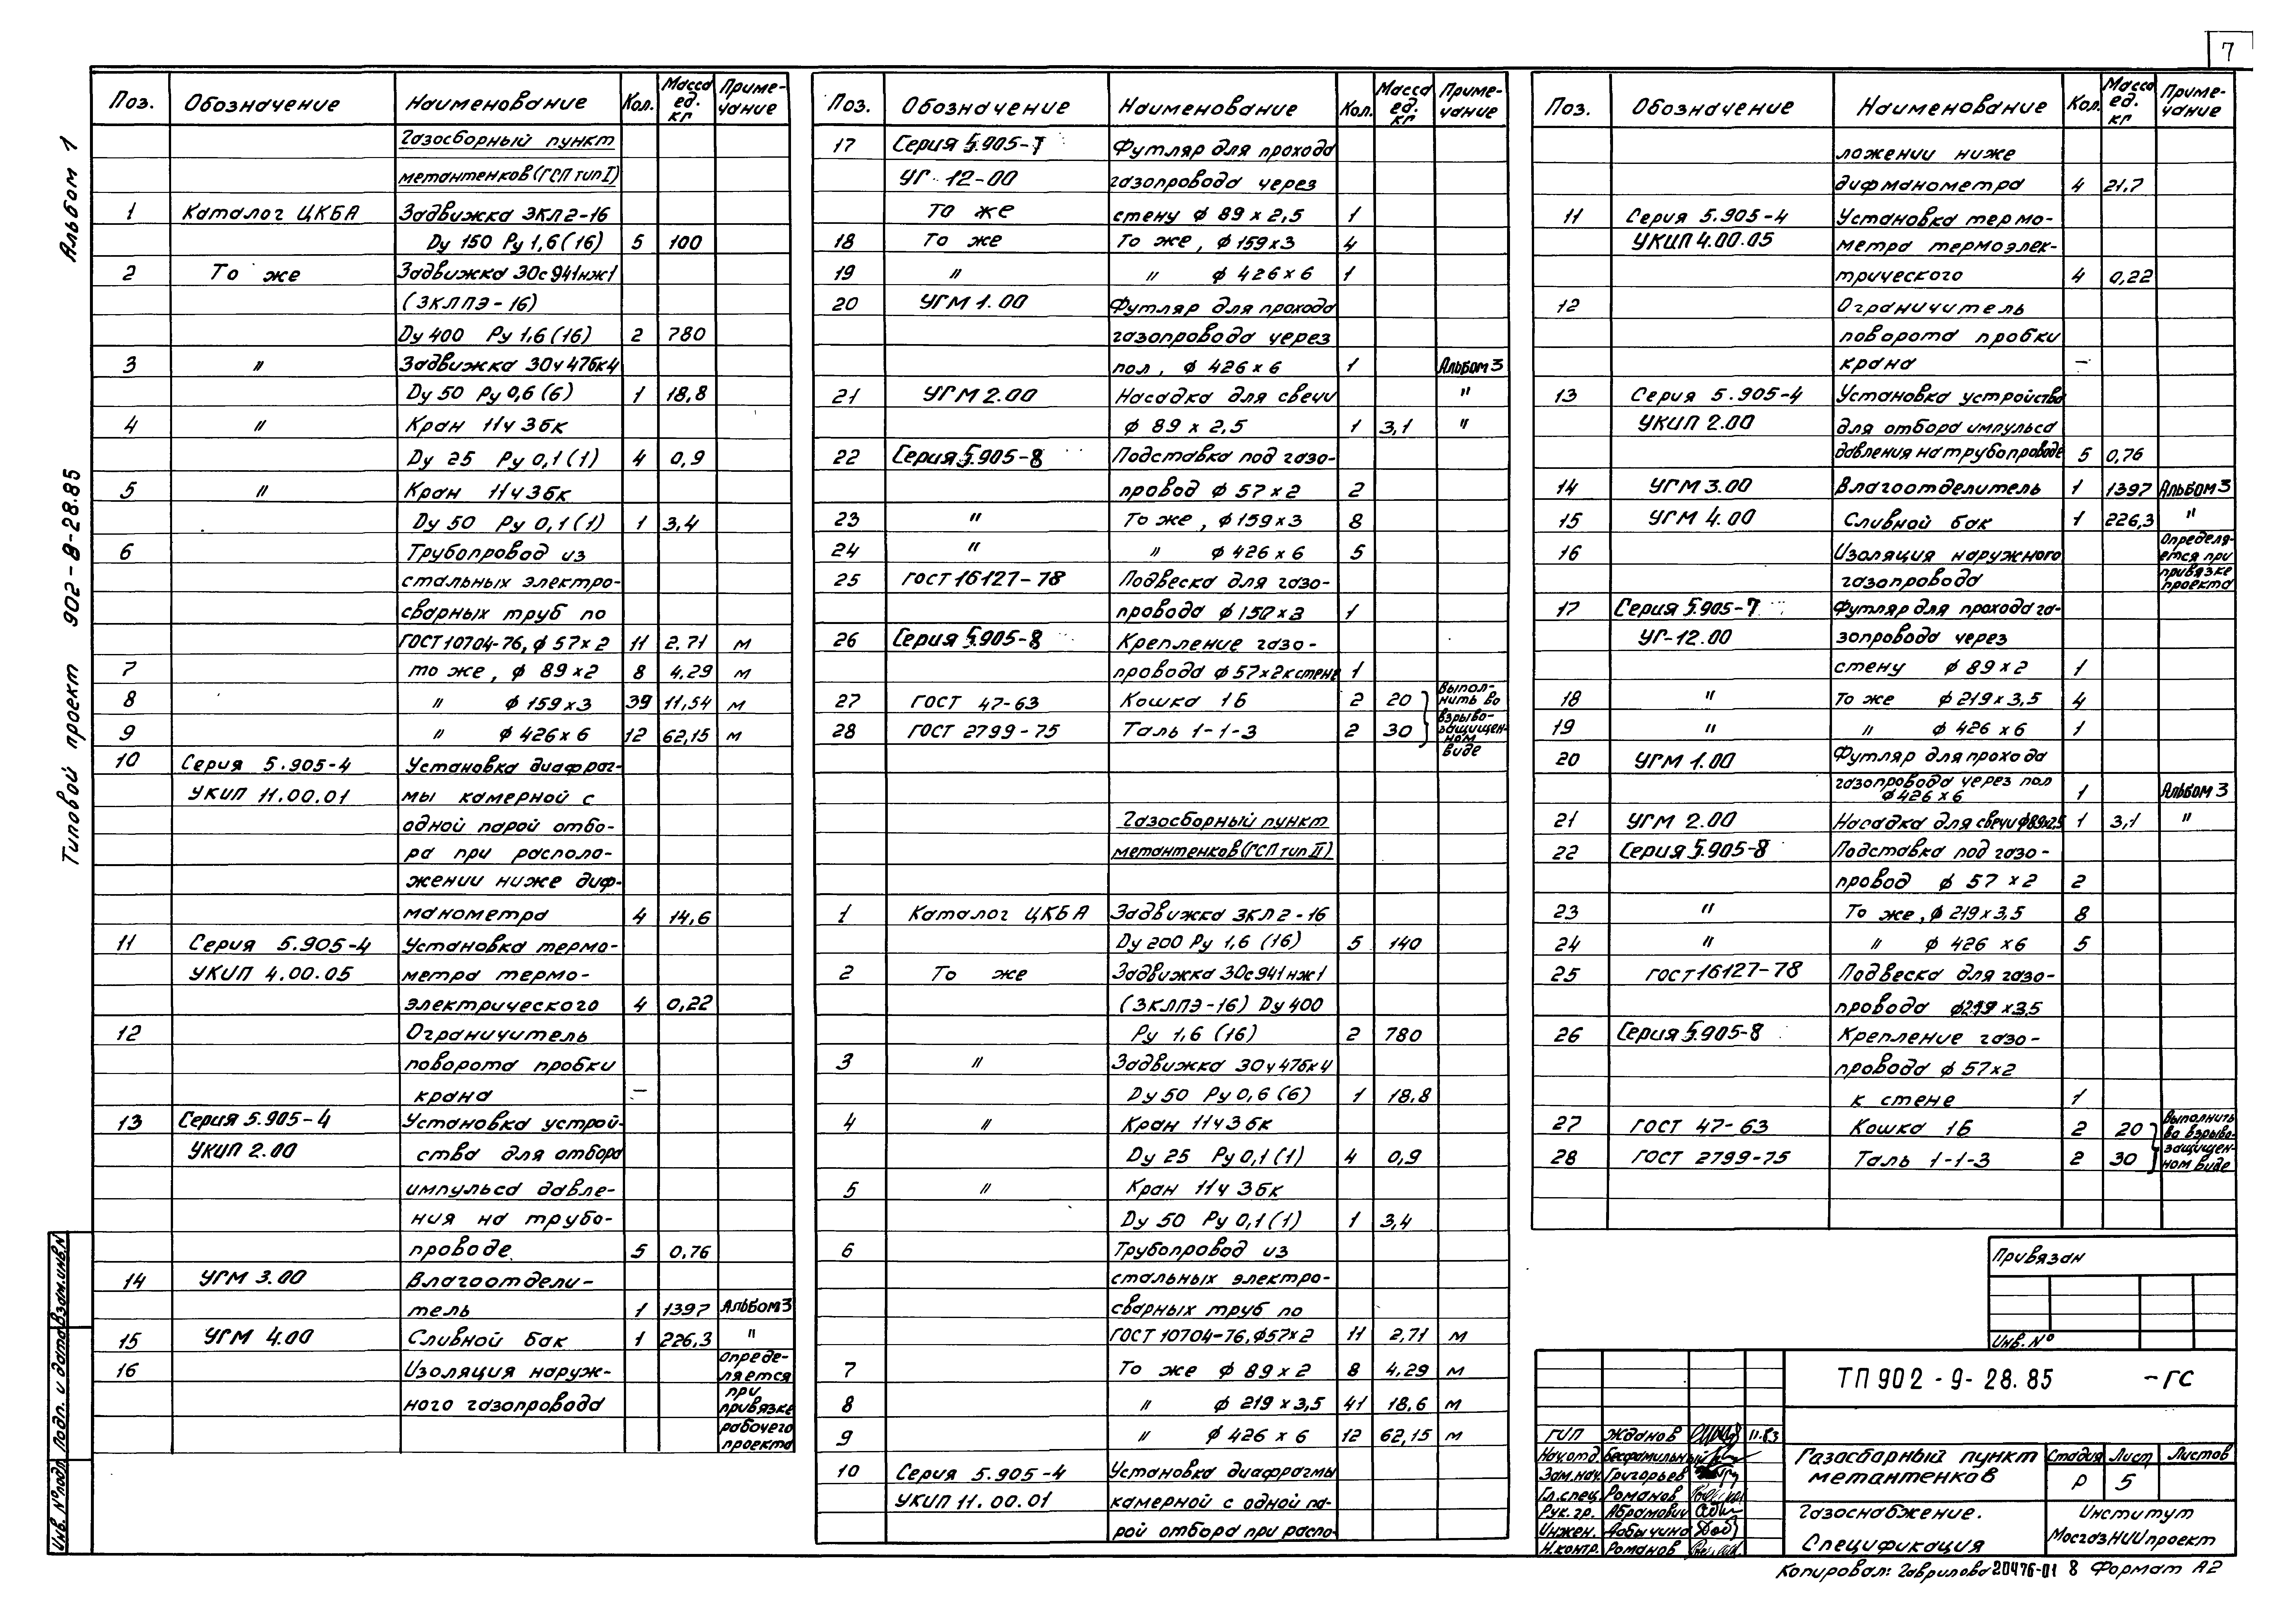 7
Альбом 1
Типовой проект 902-9-28.85
Поз. Обозначение Наименование Кол. Масса ед. кг Примечание
Газосборный пункт
метантенков (ГСП тип I)
1 Каталог ЦКБА Задвижка ЗКЛ2-16
Dу 150 Ру 1,6 (16) 5 100
2 То же Задвижка 30с941нж1
(ЗКЛПЭ-16)
Dу 400 Ру 1,6 (16) 2 780
3 " Задвижка 30ч47бк4
Dу 50 Ру 0,6 (6) 1 18,8
4 " Кран 11ч3бк
Dу 25 Ру 0,1 (1) 4 0,9
5 " Кран 11ч3бк
Dу 50 Ру 0,1 (1) 1 3,4
6 Трубопровод из
стальных электро-
сварных труб по
ГОСТ 10704-76, ϕ 57x2 11 2.71 м
7 то же, ϕ 89x2 8 4,29 м
8 " ϕ 159x3 39 11,54 м
9 " ϕ 426x6 12 62,15 м
10 Серия 5.905-4 Установка диафраг-
УКИП 11.00.01 мы камерной с
одной парой отбо-
ра при располо-
жении ниже диф-
манометра 4 14,6
11 Серия 5.905-4 Установка термо-
УКИП 4.00.05 метра термо-
электрического 4 0,22
12 Ограничитель
поворота пробки
крана —
13 Серия 5.905-4 Установка устрой-
УКИП 2.00 ства для отбора
импульса давле-
ния на трубо-
проводе 5 0,76
14 УГМ 3.00 Влагоотдели-
тель 1 1397 Альбом 3
15 УГМ 4.00 Сливной бак 1 226,3 "
16 Изоляция наруж-
ного газопровода
Опреде-
ляется
при
привязке
рабочего
проекта
Поз. Обозначение Наименование Кол. Масса ед. кг Примечание
17 Серия 5.905-7 Футляр для прохода
УГ-12-00 газопровода через
То же стену ϕ 89x2,5 1
18 То же То же, ϕ 159x3 4
19 " " ϕ 426x6 1
20 УГМ 1.00 Футляр для прохода
газопровода через
пол, ϕ 426x6 1 Альбом 3
21 УГМ 2.00 Насадка для свечи "
ϕ 89x2,5 1 3,1 "
22 Серия 5.905-8 Подставка под газо-
провод ϕ 57x2 2
23 " То же, ϕ 159x3 8
24 " " ϕ 426x6 5
25 ГОСТ 16127-78 Подвеска для газо-
провода ϕ 150x3 1
26 Серия 5.905-8 Крепление газо-
провода ϕ 57x2 к стене 1
27 ГОСТ 47-63 Кошка 1б 2 20
28 ГОСТ 2799-75 Таль 1-1-3 2 30
выпол-
нить во
взрыво-
защищен-
ном
виде
Газосборный пункт
метантенков (ГСП тип II)
1 Каталог ЦКБА Задвижка ЗКЛ2-16
Dу 200 Ру 1,6 (16) 5 140
2 То же Задвижка 30с941нж1
(ЗКЛПЭ-16) Dу 400
Ру 1,6 (16) 2 780
3 " Задвижка 30ч47бк4
Dу 50 Ру 0,6 (6) 1 18,8
4 " Кран 11ч3бк
Dу 25 Ру 0,1 (1) 4 0,9
5 " Кран 11ч3бк
Dу 50 Ру 0,1 (1) 1 3,4
6 Трубопровод из
стальных электро-
сварных труб по
ГОСТ 10704-76, ϕ57x2 11 2,71 м
7 То же ϕ 89x2 8 4,29 м
8 " ϕ 219x3,5 41 18,6 м
9 " ϕ 426x6 12 62,15 м
10 Серия 5.905-4 Установка диафрагмы
УКИП 11.00.01 камерной с одной па-
рой отбора при распо-
Поз. Обозначение Наименование Кол. Масса ед. кг Примечание
ложении ниже
дифманометра 4 21,7
11 Серия 5.905-4 Установка термо-
УКИП 4.00.05 метра термоэлек-
трического 4 0,22
12 Ограничитель
поворота пробки
крана —
13 Серия 5.905-4 Установка устройства
УКИП 2.00 для отбора импульса
давления на трубопроводе 5 0,76
14 УГМ 3.00 Влагоотделитель 1 1397 Альбом 3
15 УГМ 4.00 Сливной бак 1 226,3 "
16 Изоляция наружного
газопровода
Определя-
ется при
привязке
проекта
17 Серия 5.905-7 Футляр для прохода га-
УГ-12.00 зопровода через
стену ϕ 89x2 1
18 " То же ϕ 219x3,5 4
19 " " ϕ 426x6 1
20 УГМ 1.00 Футляр для прохода
газопровода через пол
ϕ 426x6 1 Альбом 3
21 УГМ 2.00 Насадка для свечи ϕ89x2,5 1 3,1 "
22 Серия 5.905-8 Подставка под газо-
провод ϕ 57x2 2
23 " То же, ϕ 219x3,5 8
24 " " ϕ 426x6 5
25 ГОСТ 16127-78 Подвеска для газо-
провода ϕ219x3,5
26 Серия 5.905-8 Крепление газо-
провода ϕ 57x2
к стене 1
27 ГОСТ 47-63 Кошка 1б 2 20
28 ГОСТ 2799-75 Таль 1-1-3 2 30
выполнить
во взрыво-
защищен-
ном виде
Привязан
Инв. №
ТП 902-9-28.85 -ГС
ГИП Жданов 11.83
Нач.отд. Бесфамильный
Зам.нач. Григорьев
Гл.спец. Романов
Рук.гр. Абрамович
Инжен. Добычина
Н.контр. Романов
Газосборный пункт
метантенков
Стадия Лист Листов
Р 5
Газоснабжение.
Спецификация
Институт
МосгазНИИпроект
Копировал: Гаврилова 20476-01 8 Формат А2
Инв. № подл. Подп. и дата Взам.инв.N